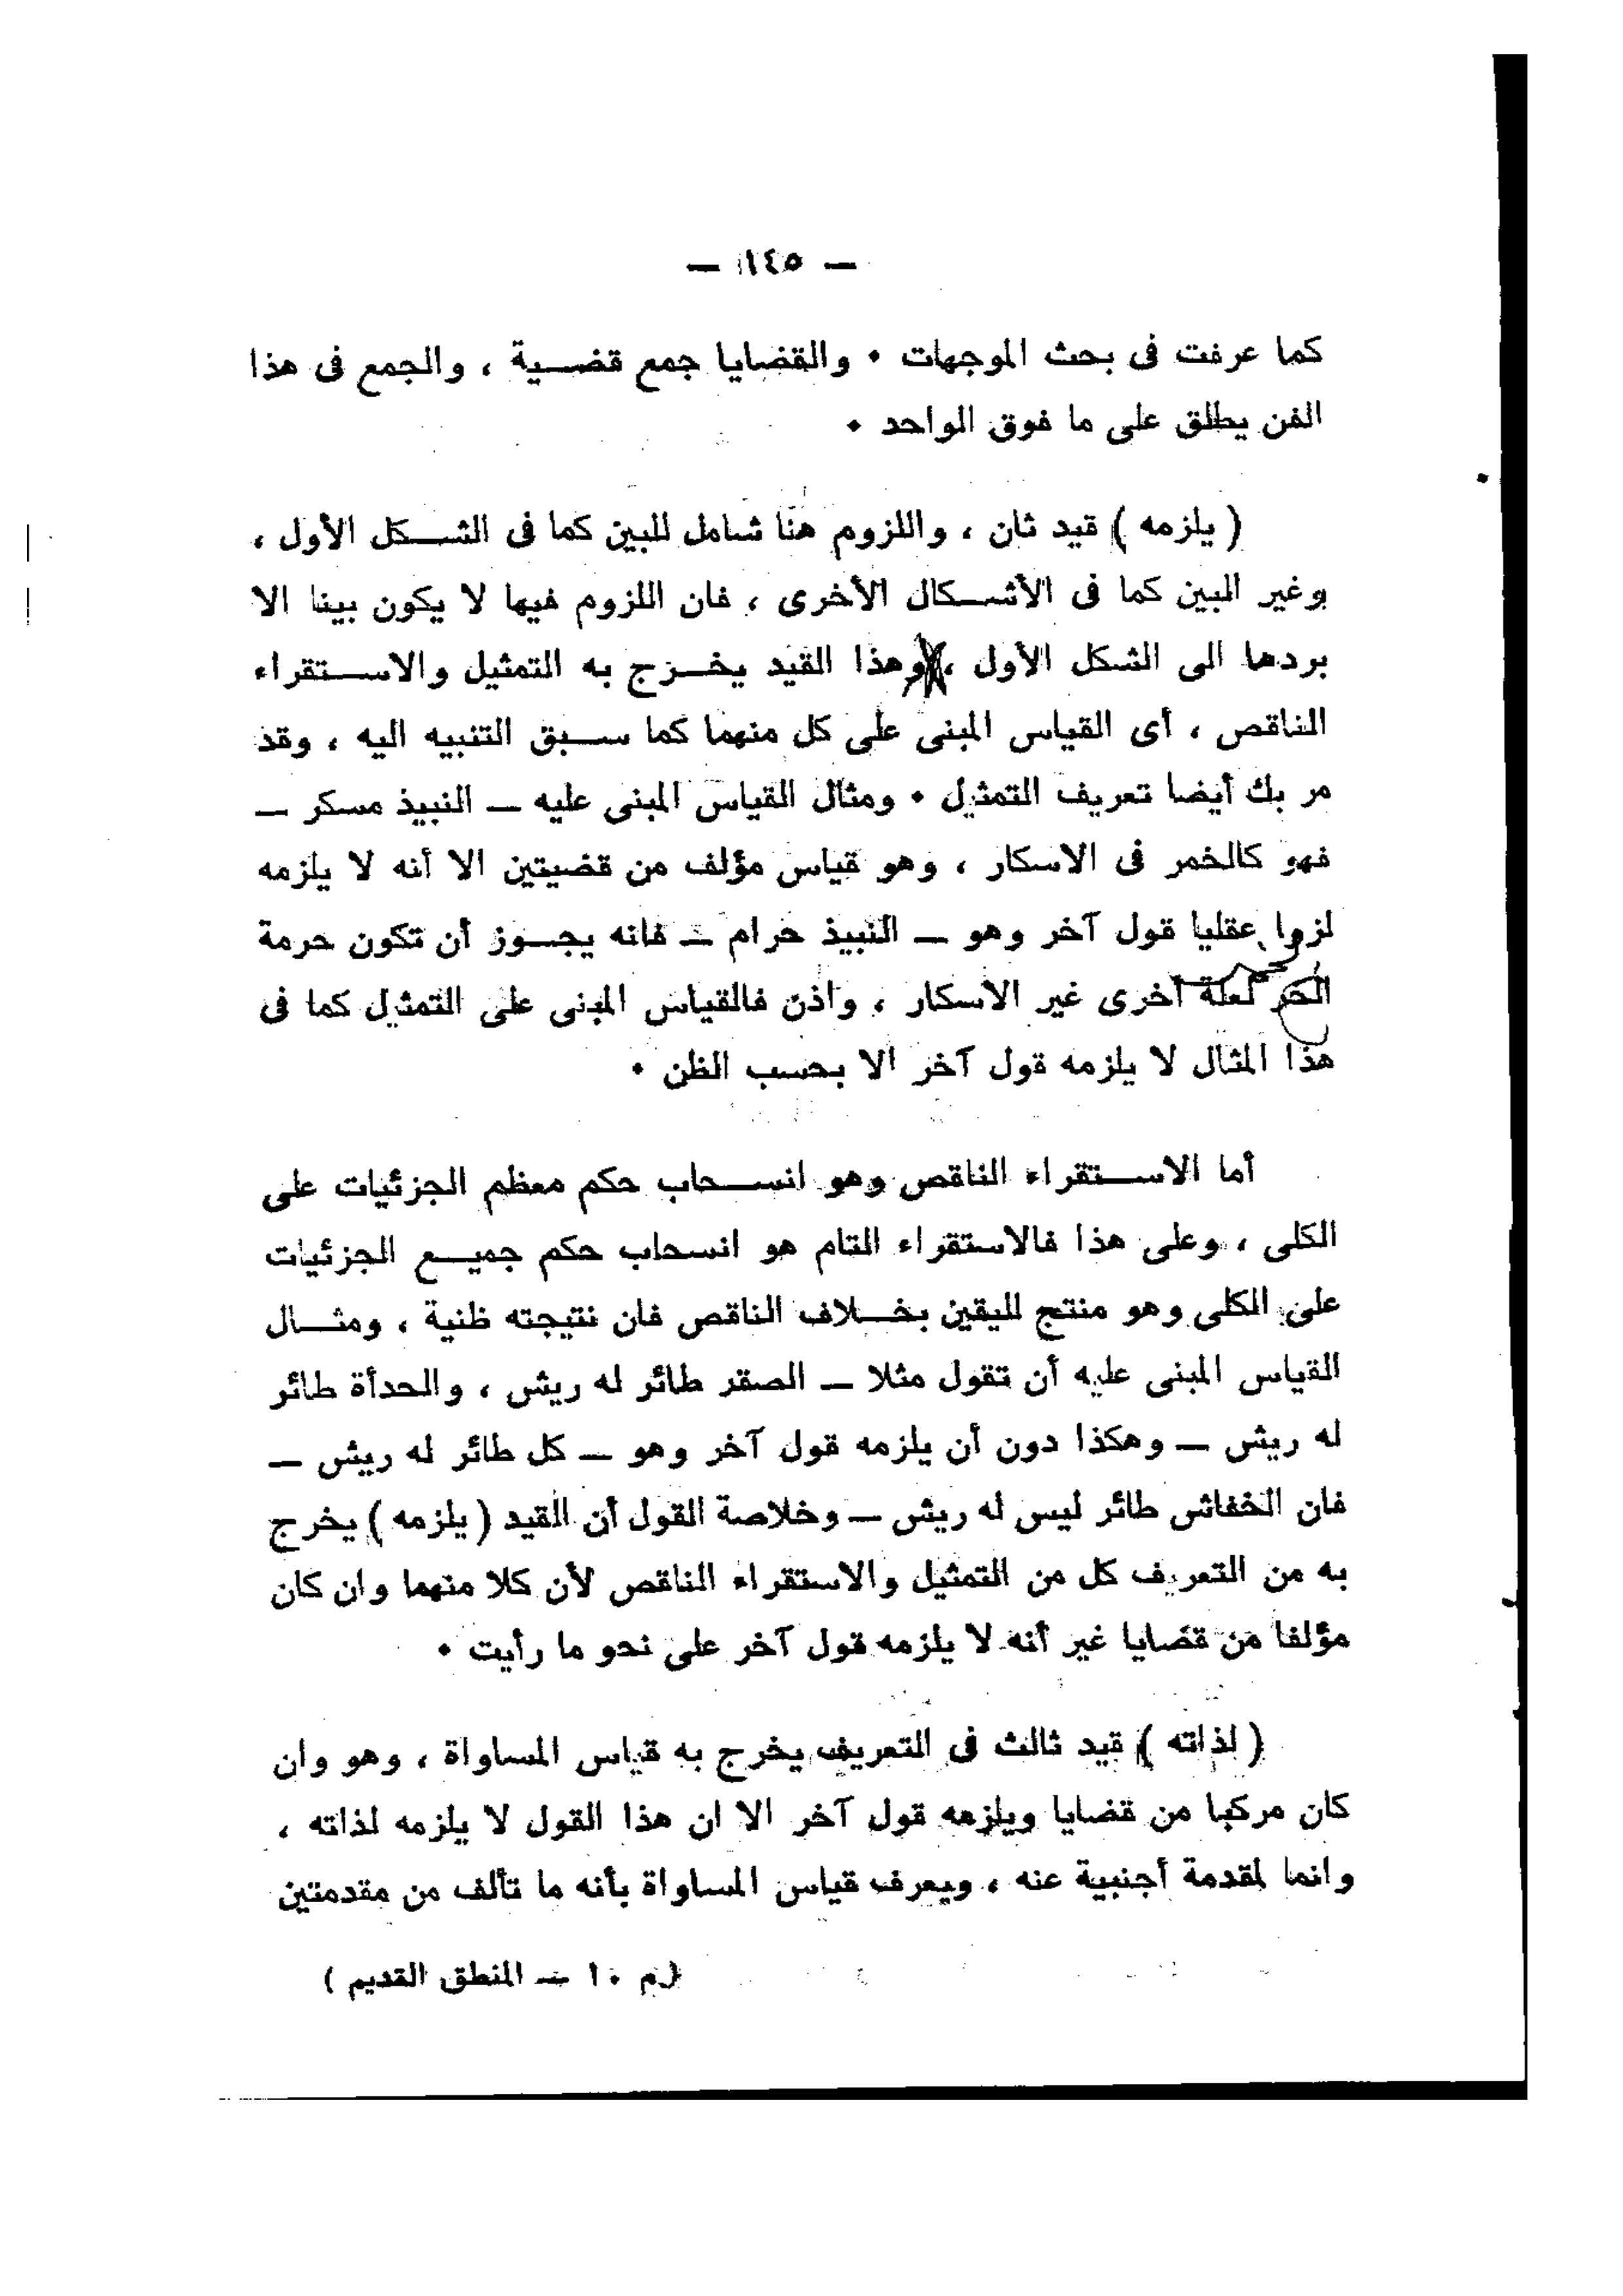 — ١٤٥ —
كما عرفت فى بحث الموجهات ٠ والقضايا جمع قضية ، والجمع فى هذا
الفن يطلق على ما فوق الواحد ٠
( يلزمه ) قيد ثان ، واللزوم هنا شامل للبين كما فى الشكل الأول ،
وغير البين كما فى الأشكال الأخرى ، فان اللزوم فيها لا يكون بينا الا
بردها الى الشكل الأول ، وهذا القيد يخرج به التمثيل والاستقراء
الناقص ، أى القياس المبنى على كل منهما كما سبق التنبيه اليه ، وقد
مر بك أيضا تعريف التمثيل ٠ ومثال القياس المبنى عليه — النبيذ مسكر —
فهو كالخمر فى الاسكار ، وهو قياس مؤلف من قضيتين الا أنه لا يلزمه
لزوما عقليا قول آخر وهو — النبيذ حرام — فانه يجوز أن تكون حرمة
الخمر لعلة أخرى غير الاسكار ، واذن فالقياس المبنى على التمثيل كما فى
هذا المثال لا يلزمه قول آخر الا بحسب الظن ٠
أما الاستقراء الناقص وهو انسحاب حكم معظم الجزئيات على
الكلى ، وعلى هذا فالاستقراء التام هو انسحاب حكم جميع الجزئيات
على الكلى وهو منتج لليقين بخلاف الناقص فان نتيجته ظنية ، ومثال
القياس المبنى عليه أن تقول مثلا — الصقر طائر له ريش ، والحدأة طائر
له ريش — وهكذا دون أن يلزمه قول آخر وهو — كل طائر له ريش —
فان الخفاش طائر ليس له ريش — وخلاصة القول أن القيد ( يلزمه ) يخرج
به من التعريف كل من التمثيل والاستقراء الناقص لأن كلا منهما وان كان
مؤلفا من قضايا غير أنه لا يلزمه قول آخر على نحو ما رأيت ٠
( لذاته ) قيد ثالث فى التعريف يخرج به قياس المساواة ، وهو وان
كان مركبا من قضايا ويلزمه قول آخر الا ان هذا القول لا يلزمه لذاته ،
وانما لمقدمة أجنبية عنه ، ويعرف قياس المساواة بأنه ما تألف من مقدمتين
( م ١٠ — المنطق القديم )